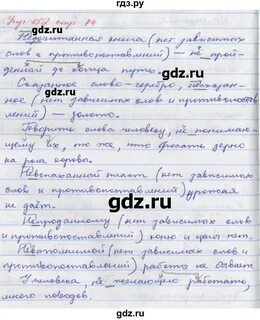 Упр 157 стр. 74
Недочитанная книга (нет зависимых
слов и противопоставлений) – не прой-
денный до конца путь.
Сказанное слово – серебро, несказан-
ное (нет зависимых слов и противопостав-
лений) – золото.
Говорить слова человеку, не понимаю-
щему их, то же, что бросать зерно
на рога коровы.
Невспаханный пласт (нет зависимых
слов и противопоставлений) урожая
не даёт.
Непроданному (нет зависимых слов
и противопоставлений) коню и цены нет.
Невыполнимой (нет зависимых слов и
противопоставлений) работы не бывает.
У человека, не желающего работать,
много поводов.